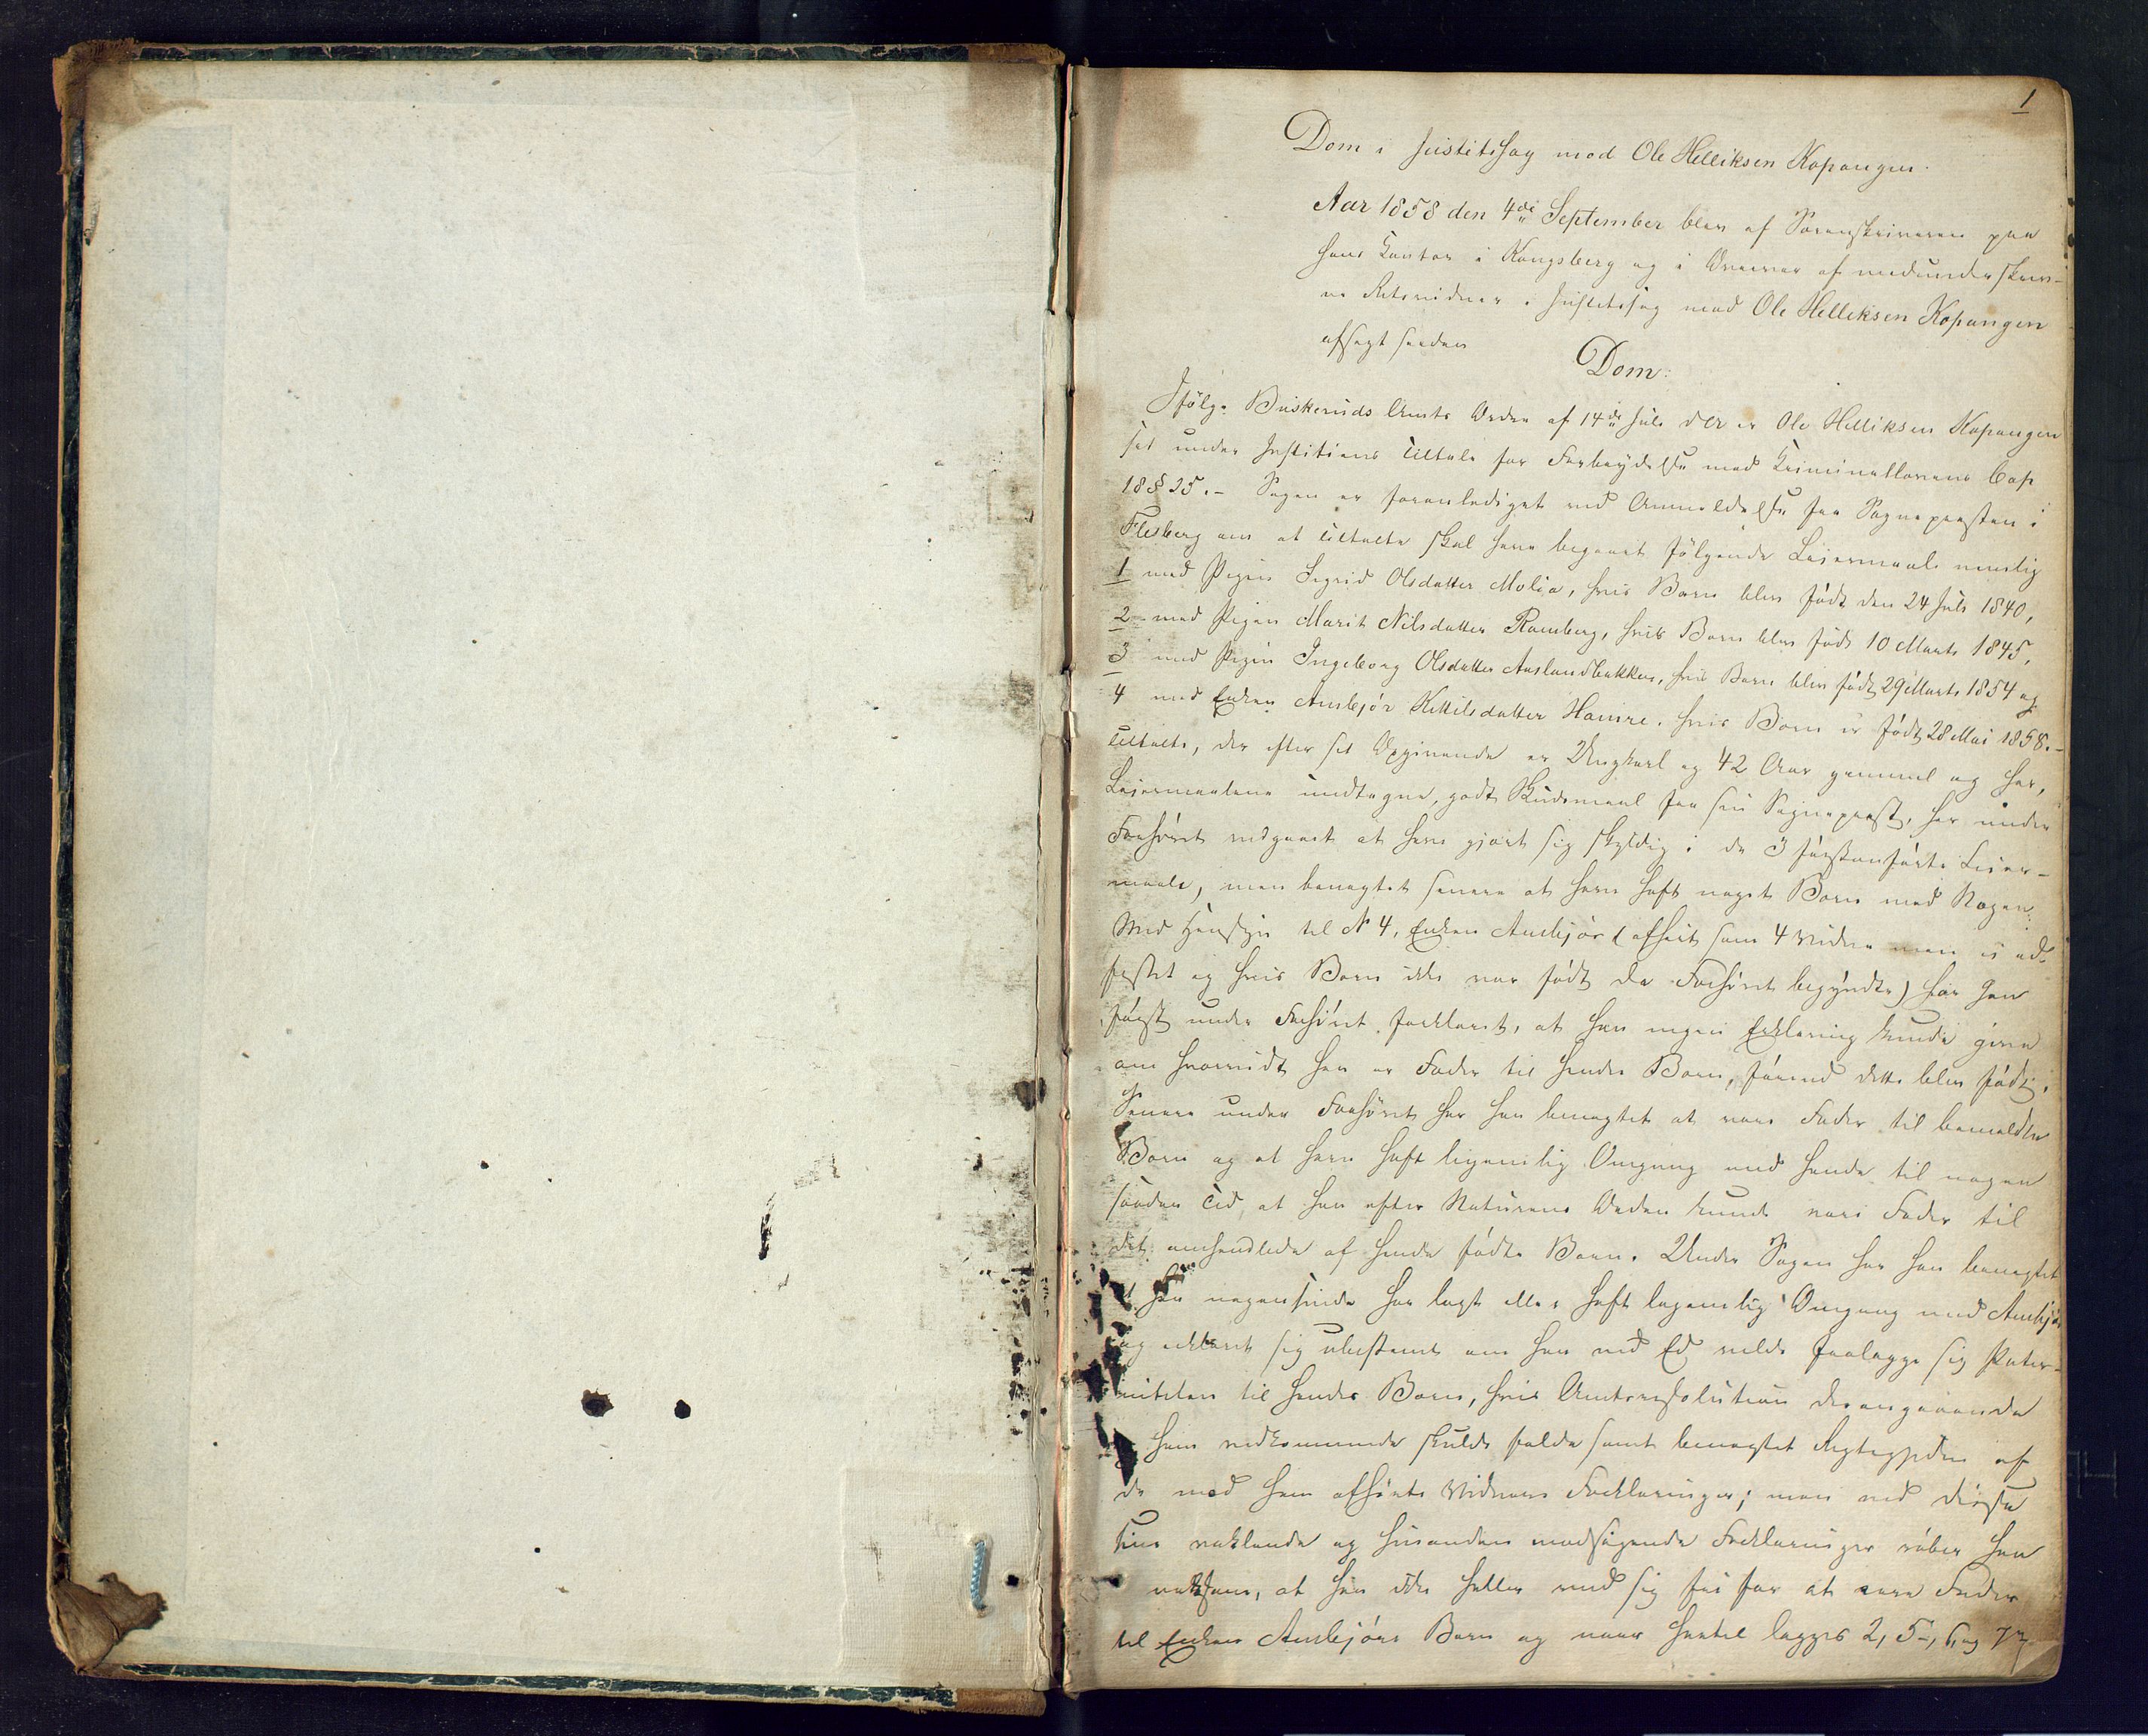 1
Dom i Justitssag mod Ole Helliksen Kopangen.
Aar 1858 den 4de September blev af Sorenskriveren paa
hans Kontor i Kongsberg og i Overvær af medunderskrev-
ne Retsvidner i Justitssag mod Ole Helliksen Kopangen
afsagt saadan
Dom:
Ifølge Buskeruds Amts Ordre af 14de Juli d. A. er Ole Helliksen Kopangen
sat under Justitiens Tiltale for Forbrydelse mod Kriminallovens Cap
18 § 25. – Sagen er foranlediget ved Anmeldelse fra Sognepresten i
Flesberg om at Tiltalte skal have begaaet følgende Leiermaale nemlig
1 med Pigen Sigrid Olsdatter Molia, hvis Barn blev født den 24 Juli 1840,
2 med Pigen Marit Nilsdatter Ramberg, hvis Barn blev født 10 Marts 1845,
3 med Pigen Ingeborg Olsdatter Aaslandbakken, hvis Barn blev født 29 Marts 1854 og
4 med Enken Ambjør Kittilsdatter Hamre, hvis Barn er født 28 Mai 1858. –
Tiltalte, der efter sit Opgivende er Ungkarl og 42 Aar gammel og har,
Leiermaalene undtagne, godt Skudsmaal fra sin Sogneprest, har under
Forhøret vedgaaet at have gjort sig skyldig i de 3 førstanførte Leier-
maale, men benægtet senere at have havt noget Barn med Nogen.
Med Hensyn til N 4, Enken Ambjør (afhørt som 4 Vidne men ei ed-
fæstet og hvis Barn ikke var født da Forhøret begyndte) har han
først under Forhøret forklaret, at han ingen Erklæring kunde give
om hvorvidt han er Fader til hendes Barn, førend dette blev født.
Senere under Forhøret har han benægtet at være Fader til bemeldte
Barn og at have havt legemlig Omgang med hende til nogen
saadan Tid, at han efter Naturens Orden kunde være Fader til
det omhandlede af hende fødte Barn. Under Sagen har han benægtet
at han nogensinde har lagt eller havt legemlig Omgang med Ambjør
og erklæret sig ubestemt om han ved Ed vilde fralægge sig Pater-
niteten til hendes Barn, hvis Amtsresolution derangaaende
hans vedkommende skulde falde samt benægtet Rigtigheden af
de mod ham afhørte Vidners Forklaringer; men ved disse
sine vaklende og hinanden modsigende Forklaringer røber han
noksom, at han ikke holder med sig fri for at være Fader
til Enken Ambjørs Barn og naar hertil lægges 2, 5, 6 og 7